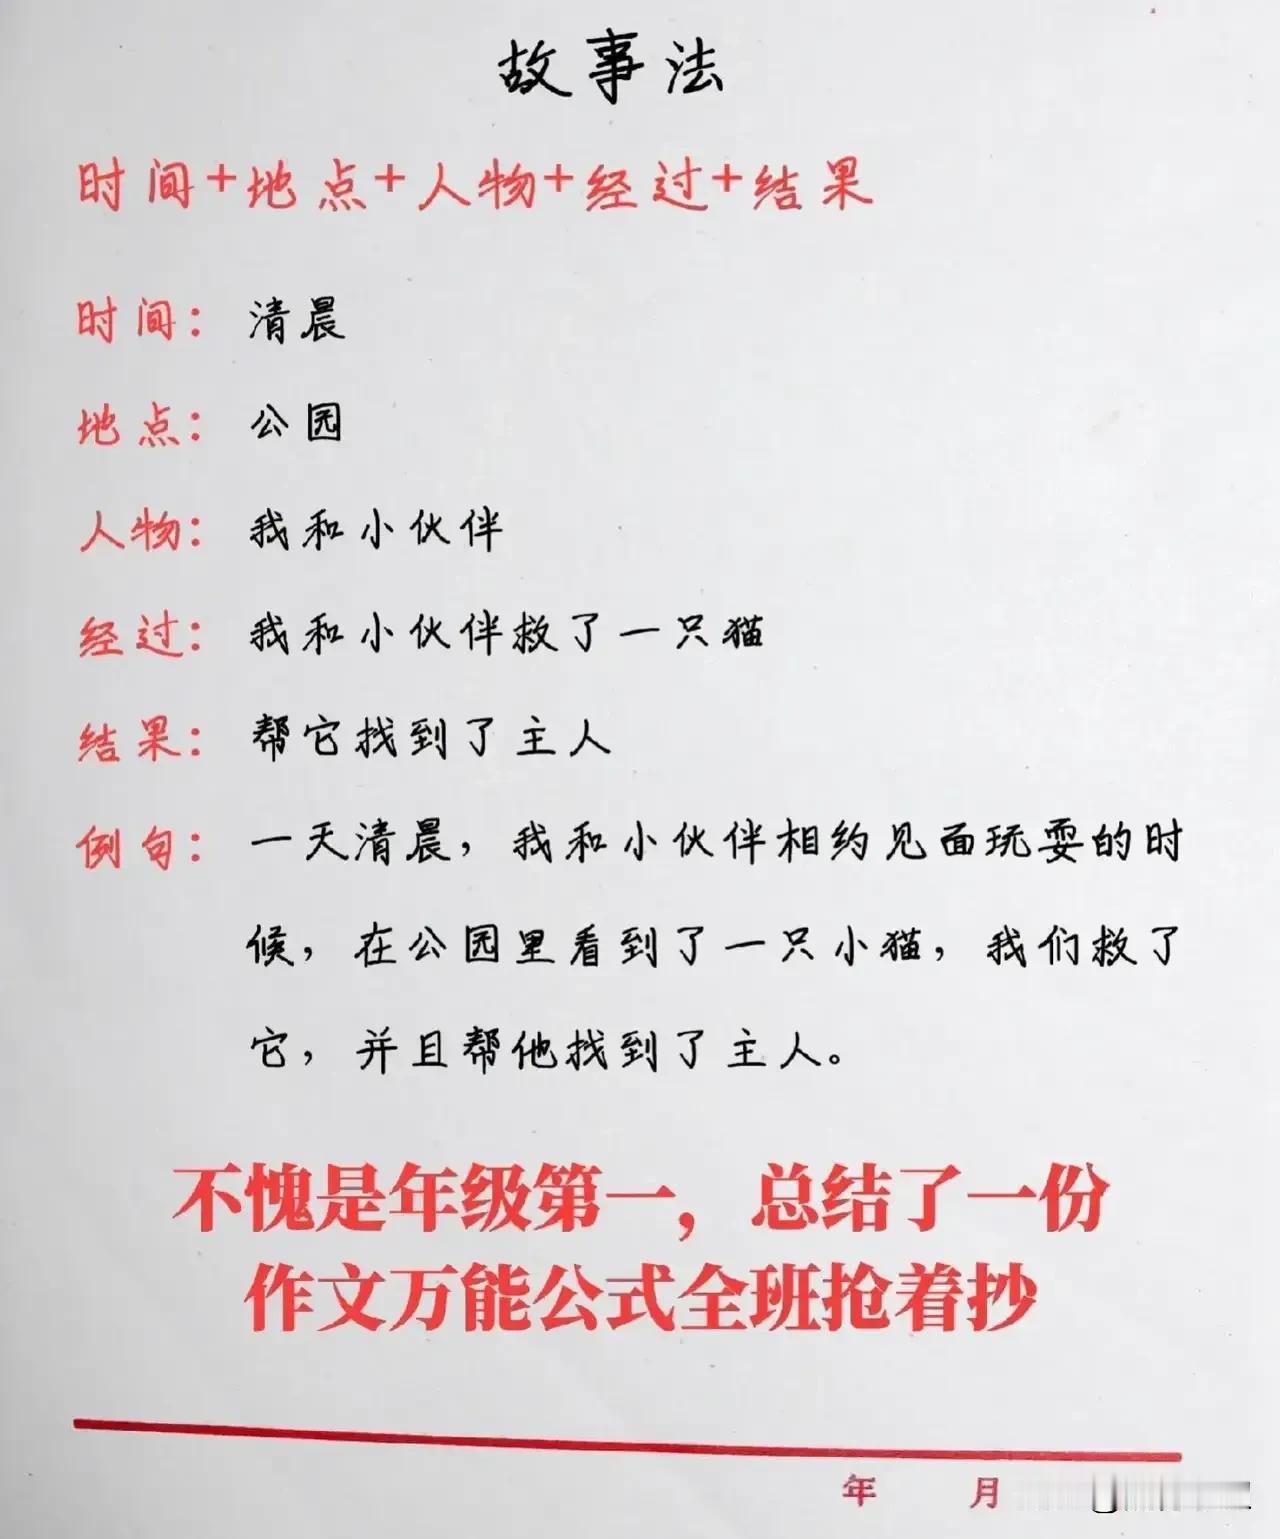 故事法
时间+地点+人物+经过+结果
时间：清晨
地点：公园
人物：我和小伙伴
经过：我和小伙伴救了一只猫
结果：帮它找到了主人
例句：一天清晨，我和小伙伴相约见面玩耍的时
候，在公园里看到了一只小猫，我们救了
它，并且帮他找到了主人。
不愧是年级第一，总结了一份
作文万能公式全班抢着抄
年 月